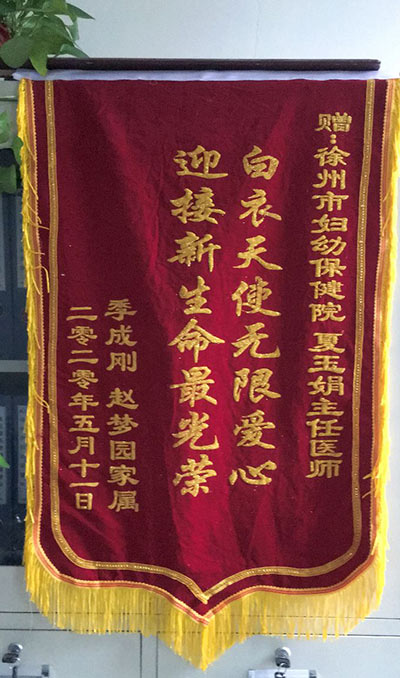 赠：徐州市妇幼保健院 夏玉娟主任医师
白衣天使无限爱心
迎接新生命最光荣
季成刚 赵梦园家属
二零二零年五月十一日